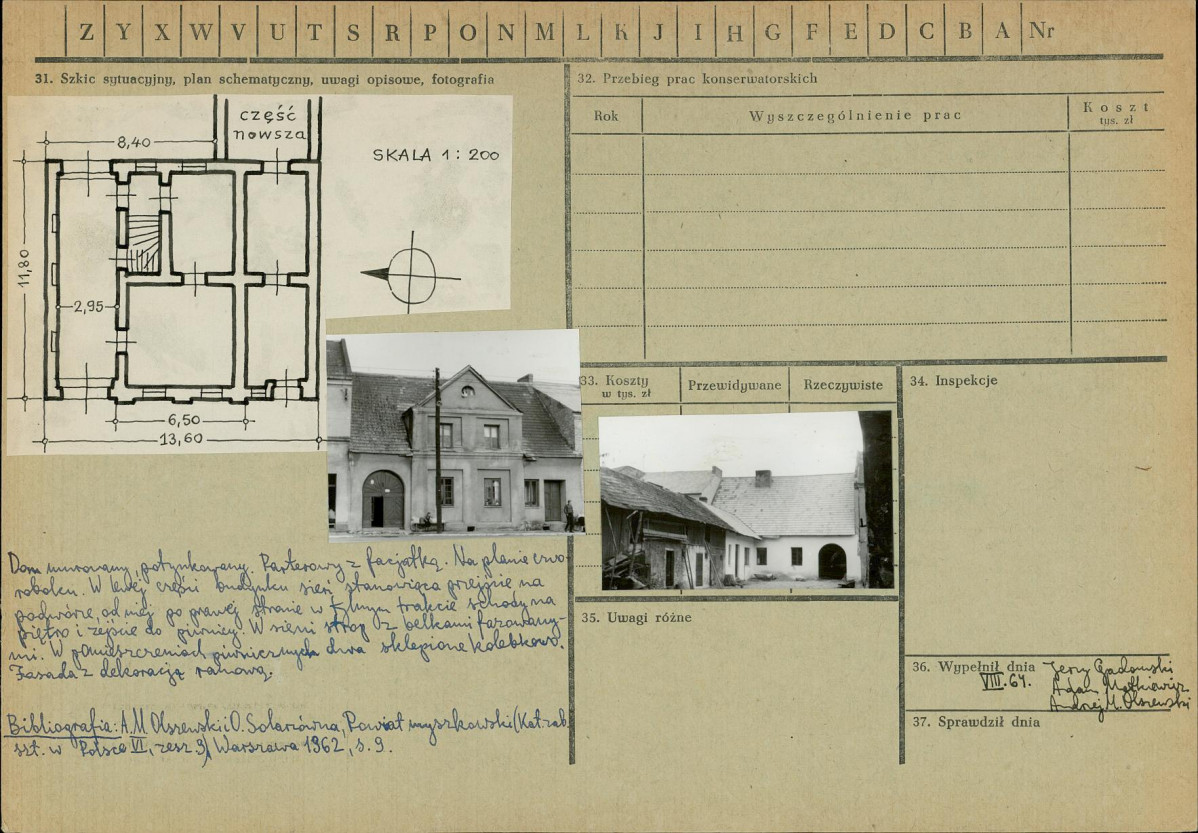 Z Y X W V U T S R P O N M L K J I H G F E D C B A Nr
31. Szkic sytuacyjny, plan schematyczny, uwagi opisowe, fotografia
część
nowsza
8,40
SKALA 1 : 200
11,80
2,95
6,50
13,60
Dom murowany, potynkowany. Parterowy z facjatką. Na planie czwo-
roboku. W lewej części budynku sień stanowiąca przejście na
podwórze, od niej po prawej stronie w tylnym trakcie schody na
piętro i zejście do piwnicy. W sieni strop z belkami fazowany-
mi. W pomieszczeniach piwnicznych dwa sklepione kolebkowo.
Fasada z dekoracją ramową.
Bibliografia: A.M. Olszewski i O. Solarzówna, Powiat myszkowski (Kat. zab.
szt. w Polsce VI, zesz. 9) Warszawa 1962, s. 9.
32. Przebieg prac konserwatorskich
Rok
Wyszczególnienie prac
Koszt
tys. zł
33. Koszty
w tys. zł
Przewidywane
Rzeczywiste
34. Inspekcje
35. Uwagi różne
36. Wypełnił dnia
VIII.64.
Jerzy Gadomski
Adam Małkiewicz
Andrzej M. Olszewski
37. Sprawdził dnia